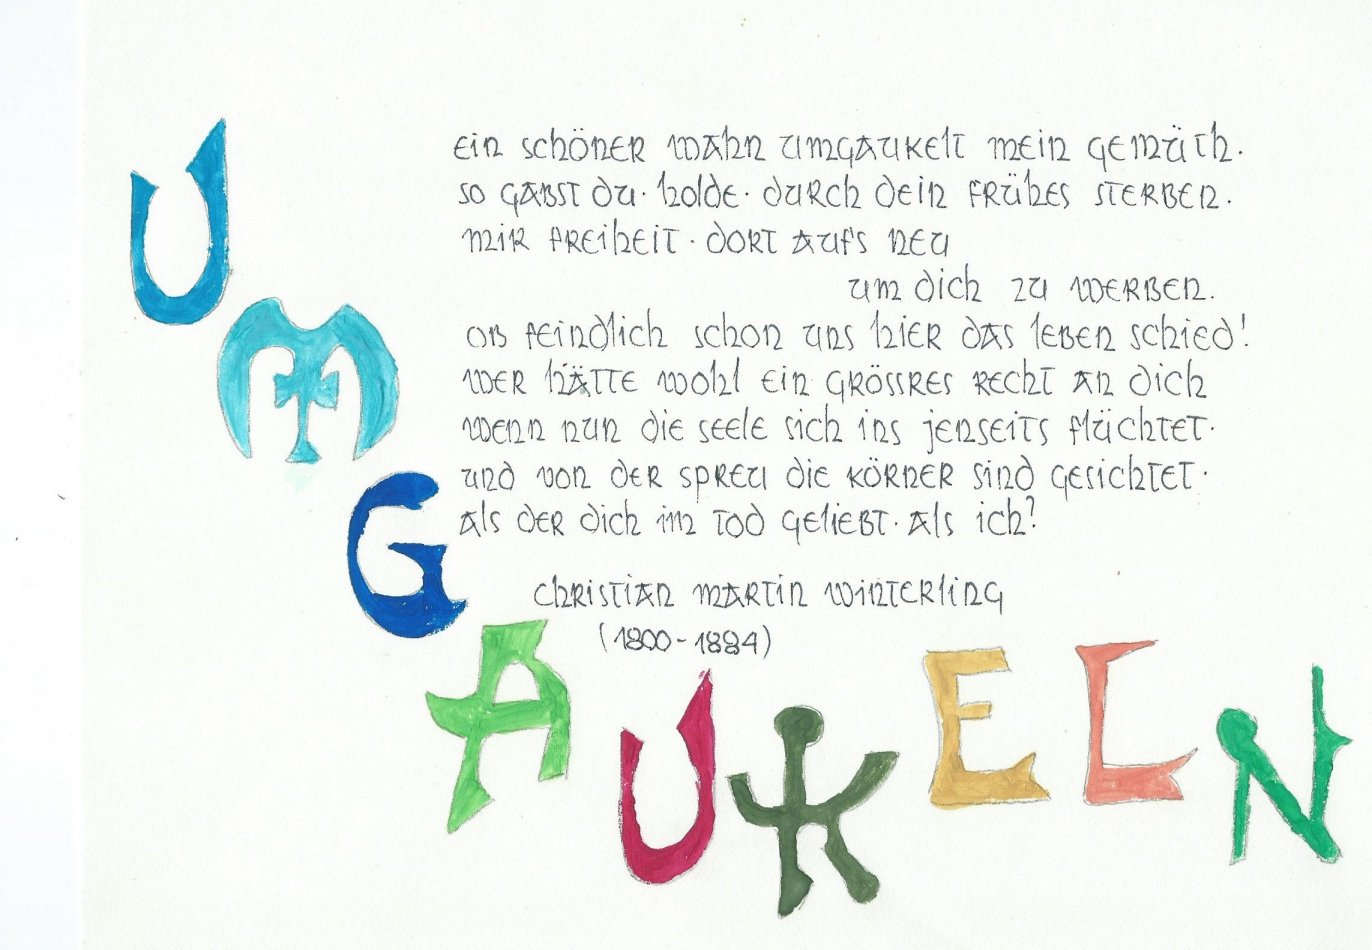 Ein schöner Wahn umgaukelt mein Gemüth.
So gabst du. Holde. durch dein frühes Sterben.
Mir Freiheit. dort aufs neu
um dich zu werben.
Ob feindlich schon uns hier das Leben schied!
Wer hätte wohl ein grössres Recht an dich
Wenn nun die Seele sich ins Jenseits flüchtet.
und von der Spreu die Körner sind gesichtet.
Als der dich im Tod geliebt. als ich?
Christian Martin Winterling
(1800-1884)
UMGAUKELN